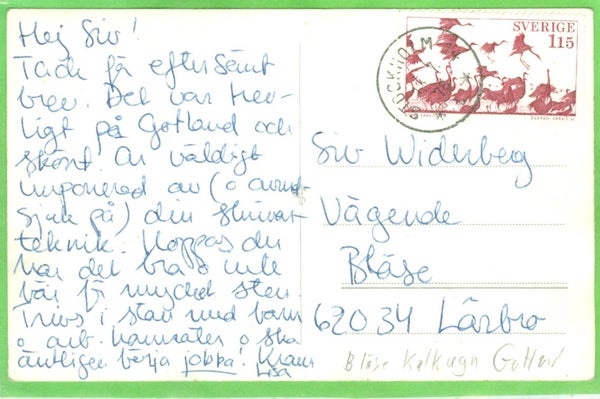 Hej Siv!
Tack få efter sänt
brev. Det var trev-
ligt på Gotland och
skönt. Är väldigt
imponerad av (o avund-
sjuk på) din skrivar
teknik. Hoppas du
har det bra o inte
bär för mycket sten.
Trivs i stan med barn
o arb. kamrater o ska
äntligen börja jobba! Kram
Lisa
SVERIGE
115
STOCKHOLM
Siv Widerberg
Vägende
Bläse
62034 Lärbro
Bläse Kalkugn Gotland